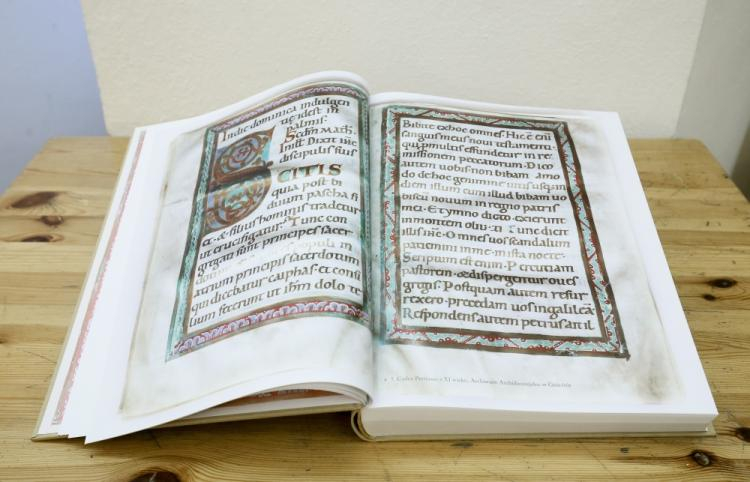 Indie dominica indulgen
tię idest in
palmis.
Secdm Math.
CITIS
quia post bi
duum pascha fi
et. & filius hominis tradetur
ut crucifigatur. Tunc con
gregati sunt principes sacer
populi in
atrium principis sacerdotum
qui dicebatur caiphas. et consi
lium fecerunt ut ihm dolo te
Bibite exhoc omnes. Hic ē enī
sanguis meus noui testamenti
qui pmultis effundetur in re
missionem peccatorum. Dico
autem uobis non bibam amo
do dehoc genimine uitis usqin
diem illum cum illud bibam uo
biscū nouum in regno patris
mei. Et ymno dicto. exierunt
inmontem oliu&i. Tunc dicit
illis ihc. Omnes uos scandalum
patiemini inme. inista nocte.
Scriptum est enim. Percutiam
pastorem. & dispergentur oues
gregis. Postquam autem resur
rexero. precedam uos ingalileā.
Respondens autem petrus ait il